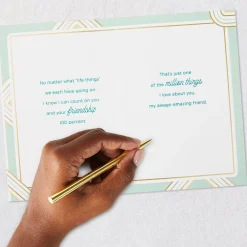 No matter what "life things"
we each have going on
I know I can count on you
and your friendship
100 percent.
That's just one
of the million things
I love about you,
my always amazing friend.